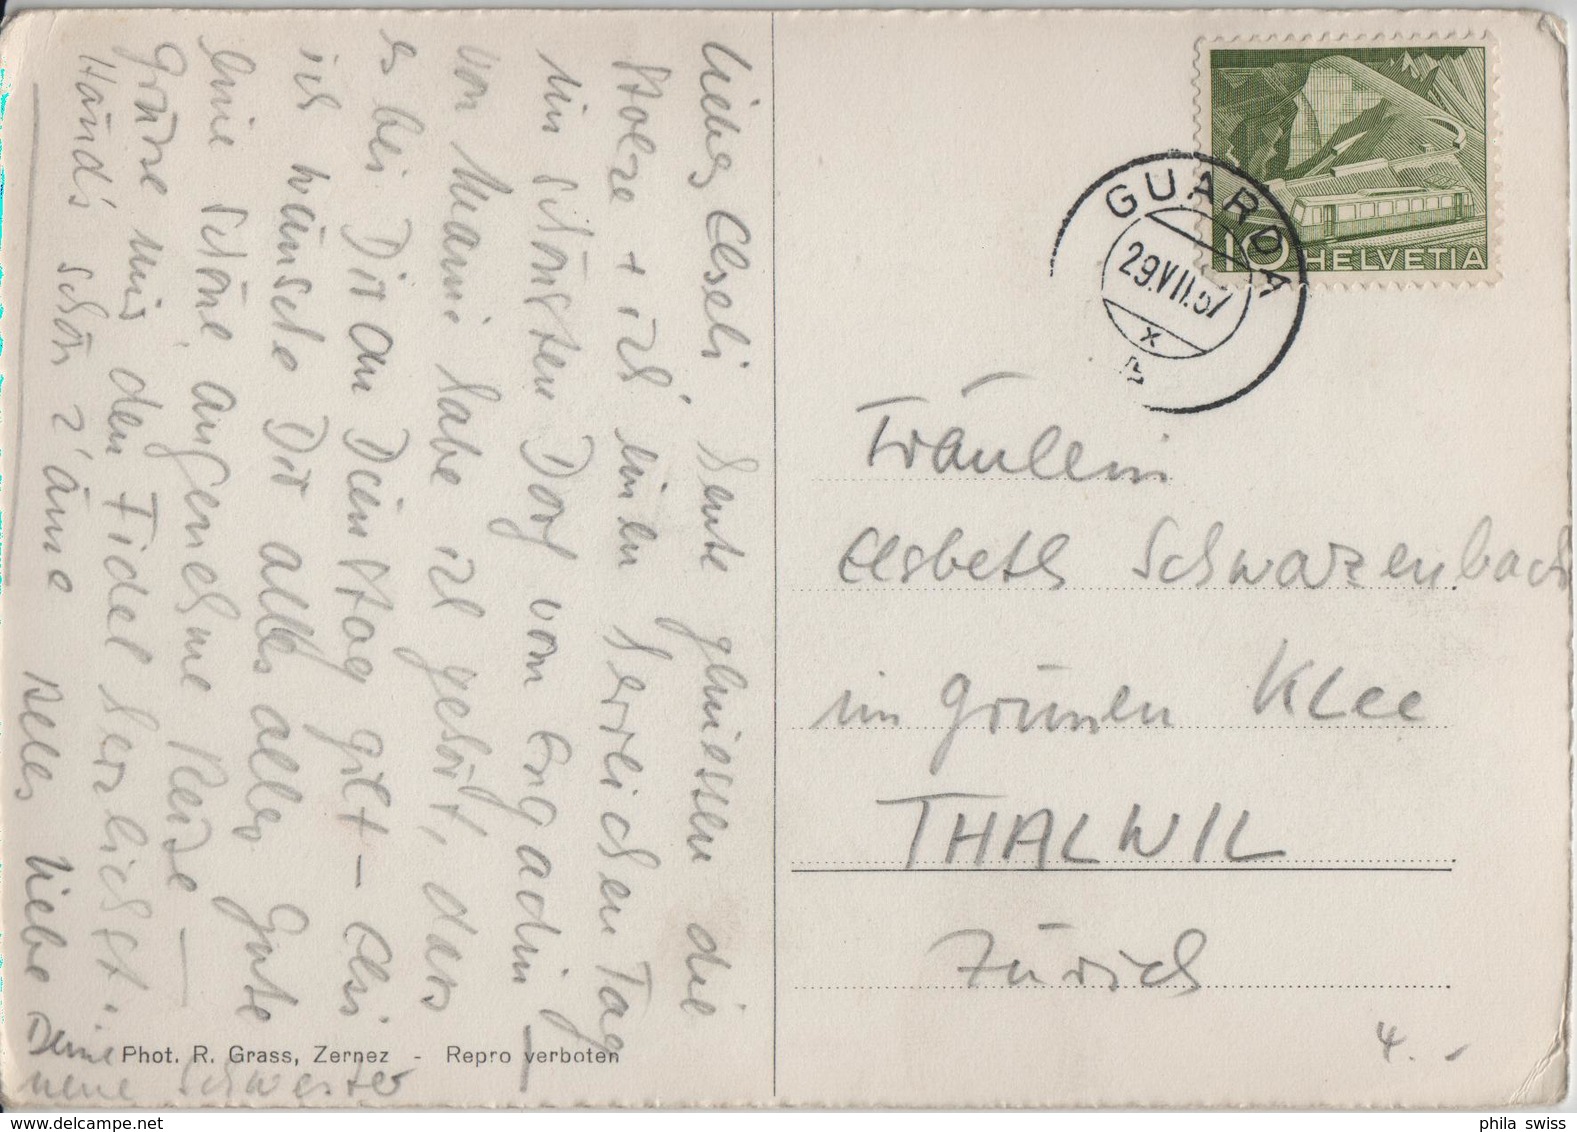 Liebes Elseli heute geniessen die
Stolze + ich einen herrlichen Tag
im schönsten Dorf vom Engadin
von Mami habe ich gehört, dass
es bei Dir am Dienstag gilt – Elsi
ich wünsche Dir alles alles Gute
eine schöne, angenehme Reise –
Grüsse mir den Fidel herzlichst.
Händ's schön z'äme
Alles Liebe Deine
neue Schwester
Phot. R. Grass, Zernez - Repro verboten
HELVETIA
10
GUARDA
29.VII.57
x
Fräulein
Elsbeth Schwarzenbach
im grünen Klee
THALWIL
Zürich
4.-
phila swiss